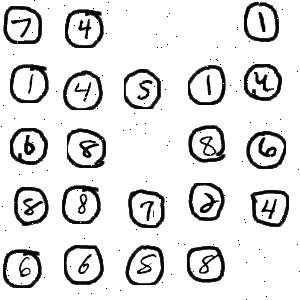 7 4 1
1 4 5 1 4
6 8 8 6
8 8 7 2 4
6 6 8 8